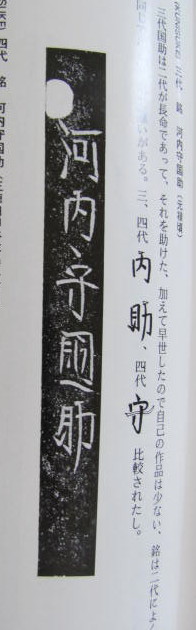 三代 銘 河内守国助（元禄頃）
三代国助は二代が長命であって、それを助けた、加えて早世したので自己の作品は少ない、銘は二代によく
いがある。三、四代 内 助、四代 守 比較されたし。
河内守国助
四代 銘 河内守国助